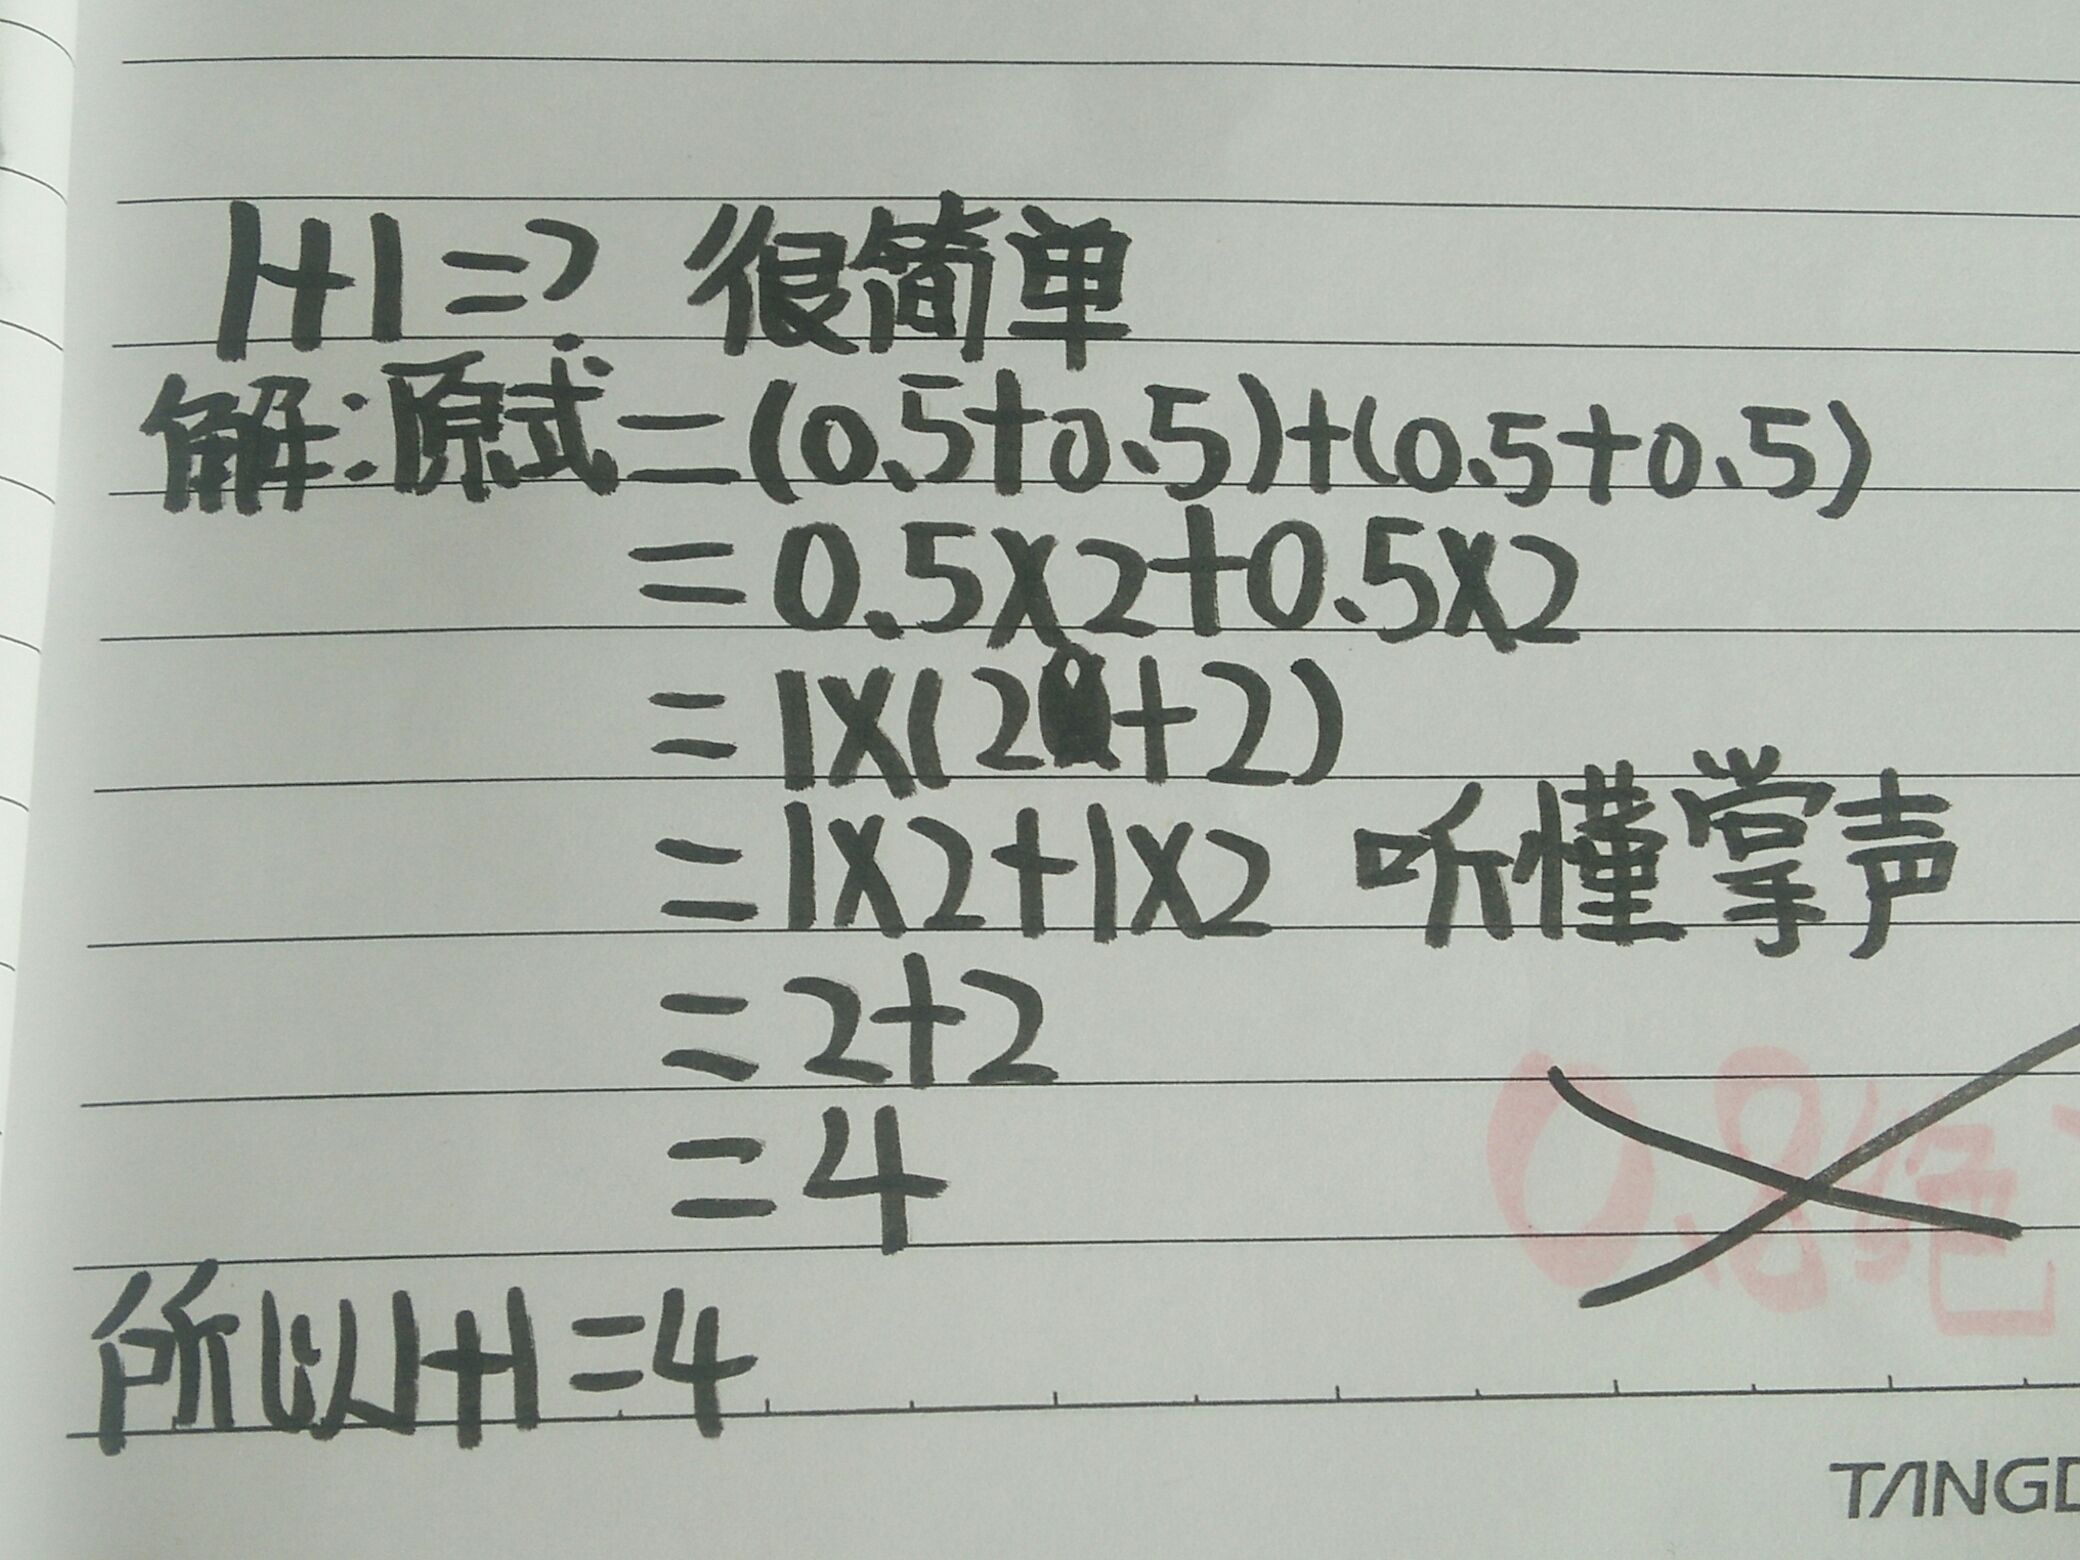 1+1=? 很简单
解:原式=(0.5+0.5)+(0.5+0.5)
=0.5×2+0.5×2
=1×(2+2)
=1×2+1×2 听懂掌声
=2+2
=4
0.8绝
所以1+1=4